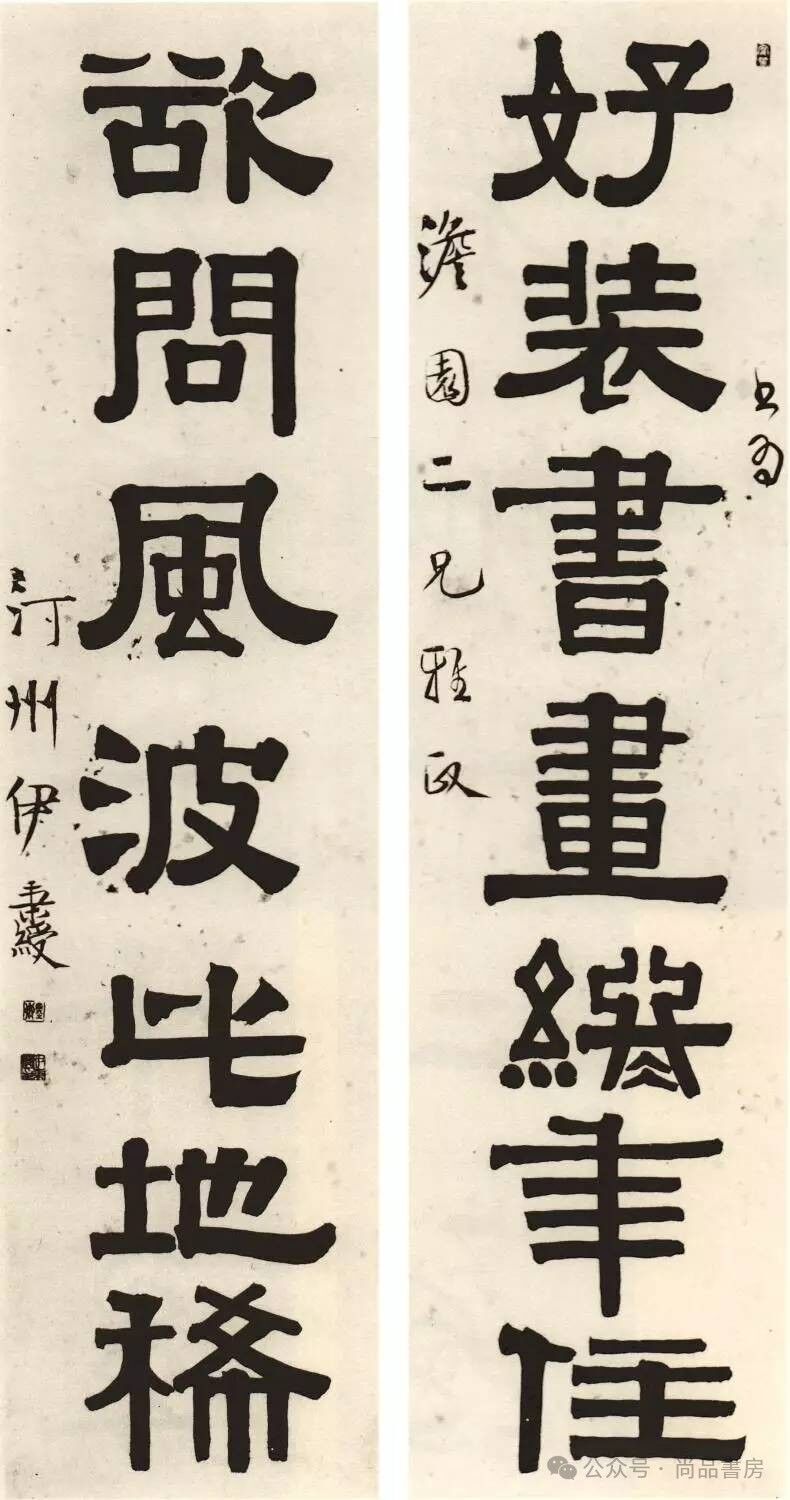 書為
好装書畫終年住
澹園二兄雅政
欲問風波此地稀
汀州伊秉綬
公众号 · 尚品書房